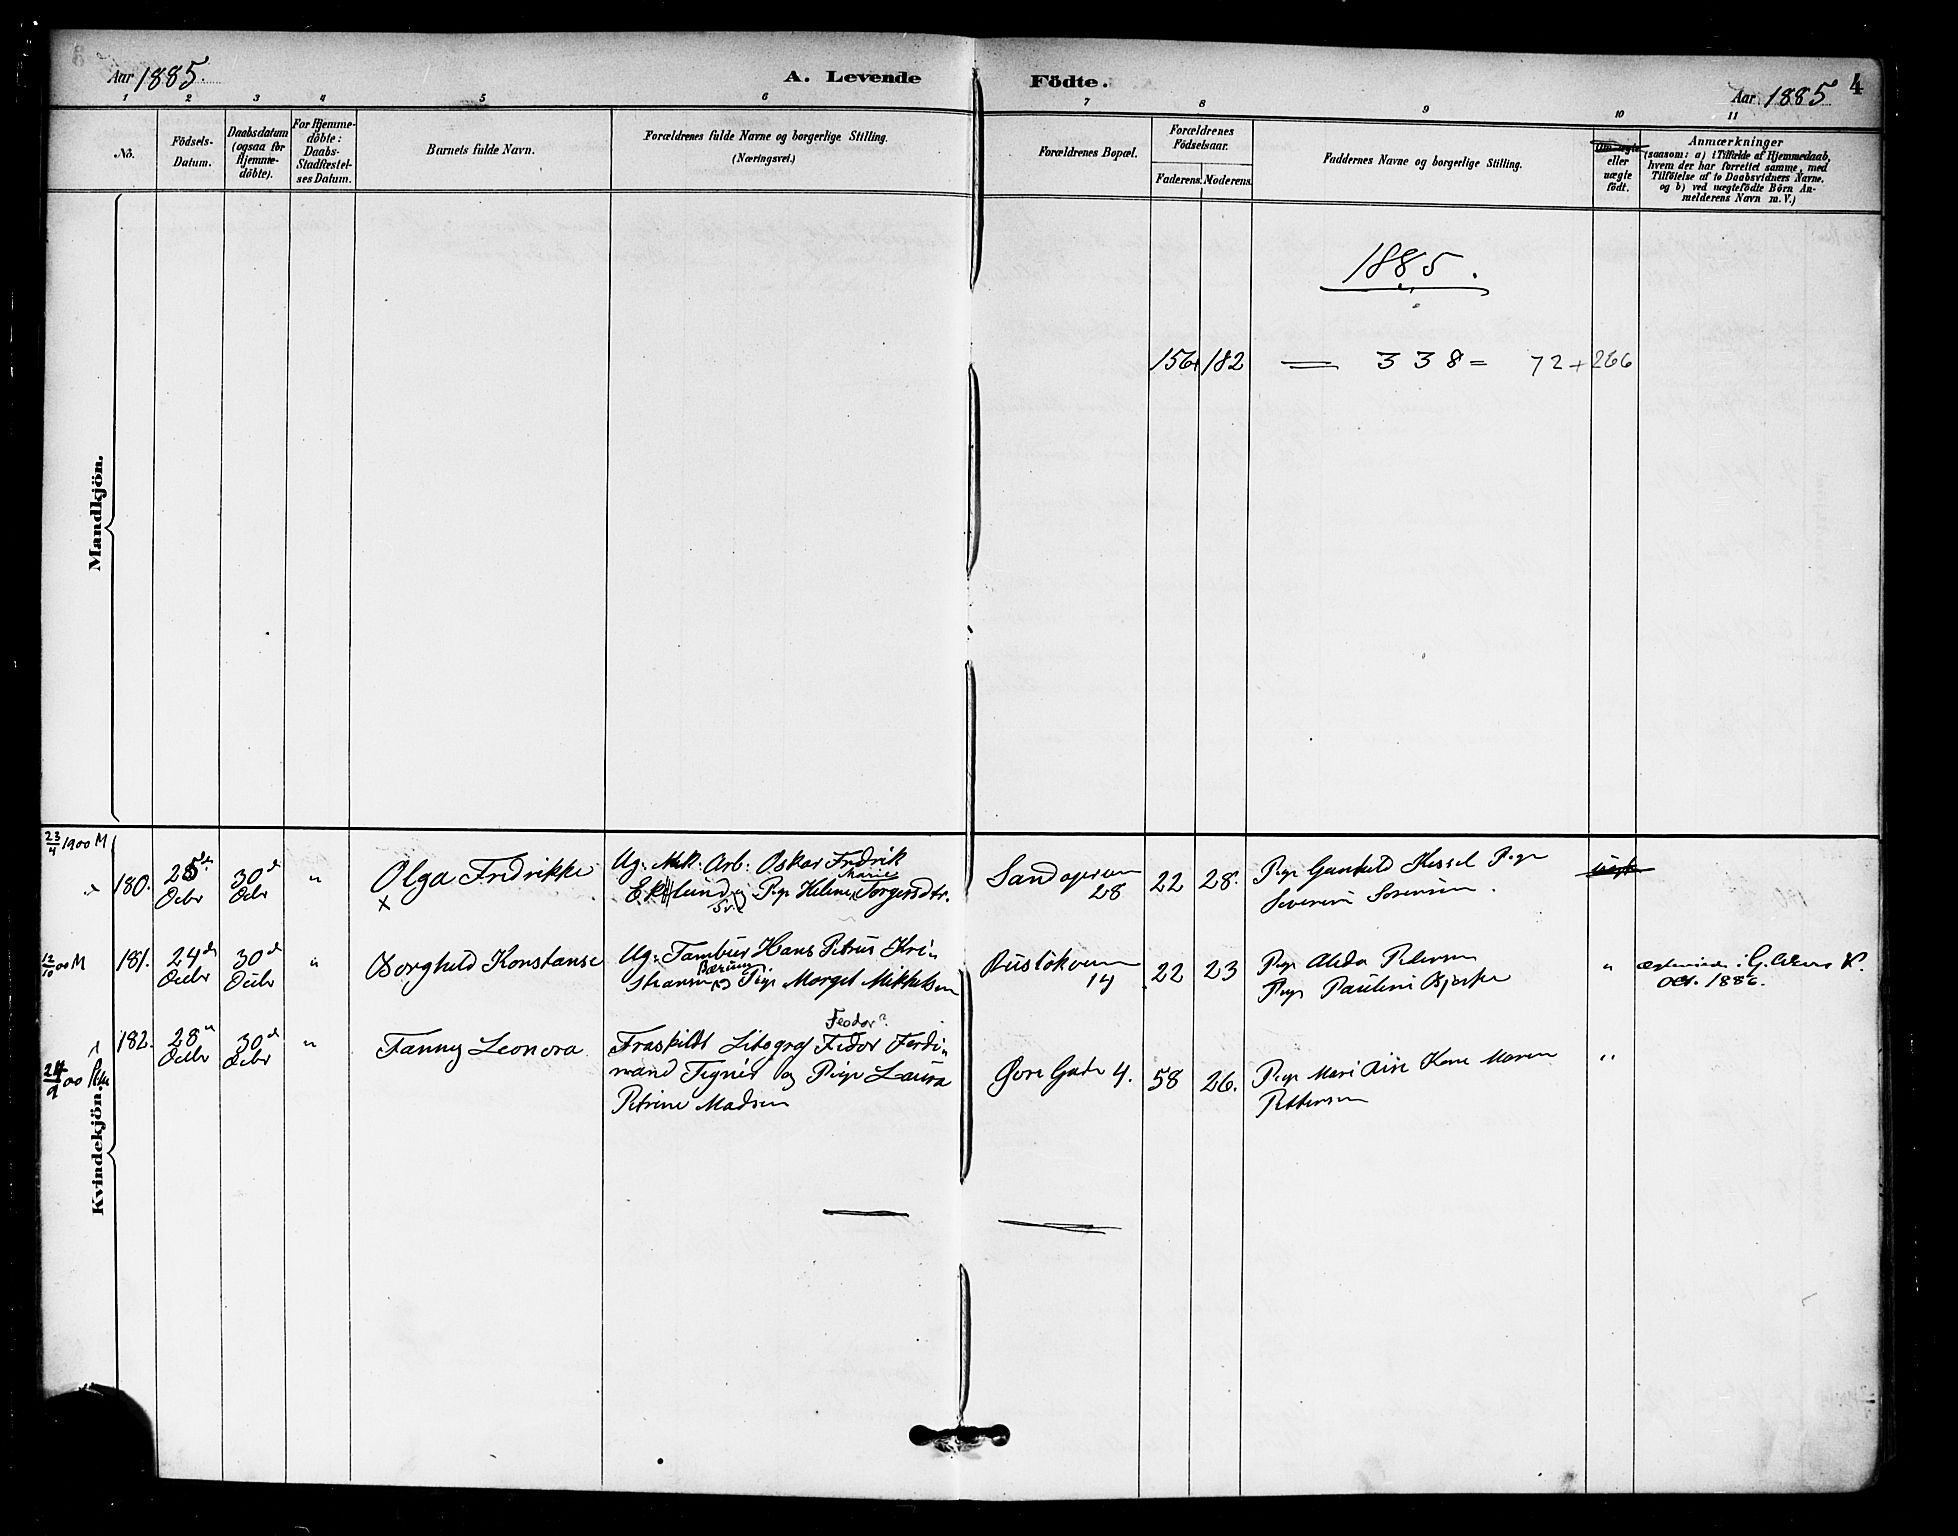 Aar 1885.
A. Levende Födte.
Aar 1885
4
1 2 3 4 5 6 7 8 9 10 11
No.
Födsels-
Datum.
Daabsdatum
(ogsaa for
Hjemme-
döbte).
For Hjemme-
döbte:
Daabs-
Stadfæstel-
ses Datum.
Barnets fulde Navn.
Forældrenes fulde Navne og borgerlige Stilling.
(Næringsvei.)
Forældrenes Bopæl.
Forældrenes
Födselsaar.
Faderens. Moderens.
Faddernes Navne og borgerlige Stilling.
Om ægte
eller
uægte
födt.
Anmærkninger
(saasom: a) i Tilfælde af Hjemmedaab,
hvem der har forrettet samme, med
Tilföielse af to Daabsvidners Navne.
og b) ved uægtefödte Börn An-
melderens Navn m. V.)
Mandkjön.
1885.
156 + 182 = 338 = 72 + 266
Kvindekjön.
23/4 1900 M
180.
25de
Decbr
30d
Decbr
"
Olga Fredrikke
x
Ug. Mek. Arb. Oskar Fredrik
Marie
Eklund og Pige Helene Torgersdtr.
28
22
28.
Pige Gunhild Hessel Pige
Severine Sorensen.
uægte
12/10 00 M
181.
24de
Decbr
30d
Decbr
"
Borghild Konstanse
Ug. Tambur Hans Petrus Kri-
Bærum
stiansen og Pige Marget Mikkelsen
14
22
23
Pige Alida Petersen
Pige Pauline Bjerke
"
Oct. 1886.
24/9 00
182.
28de
Decbr
30d
Decbr
"
Fanny Leonora
Feodor?
Fraskildt Litograf Fedor Ferdi-
nand Tegnér og Pige Laura
Petrine Madsen
Övre Gade 4.
58
26.
Pige Mari Kone Maren
Pettersen
"